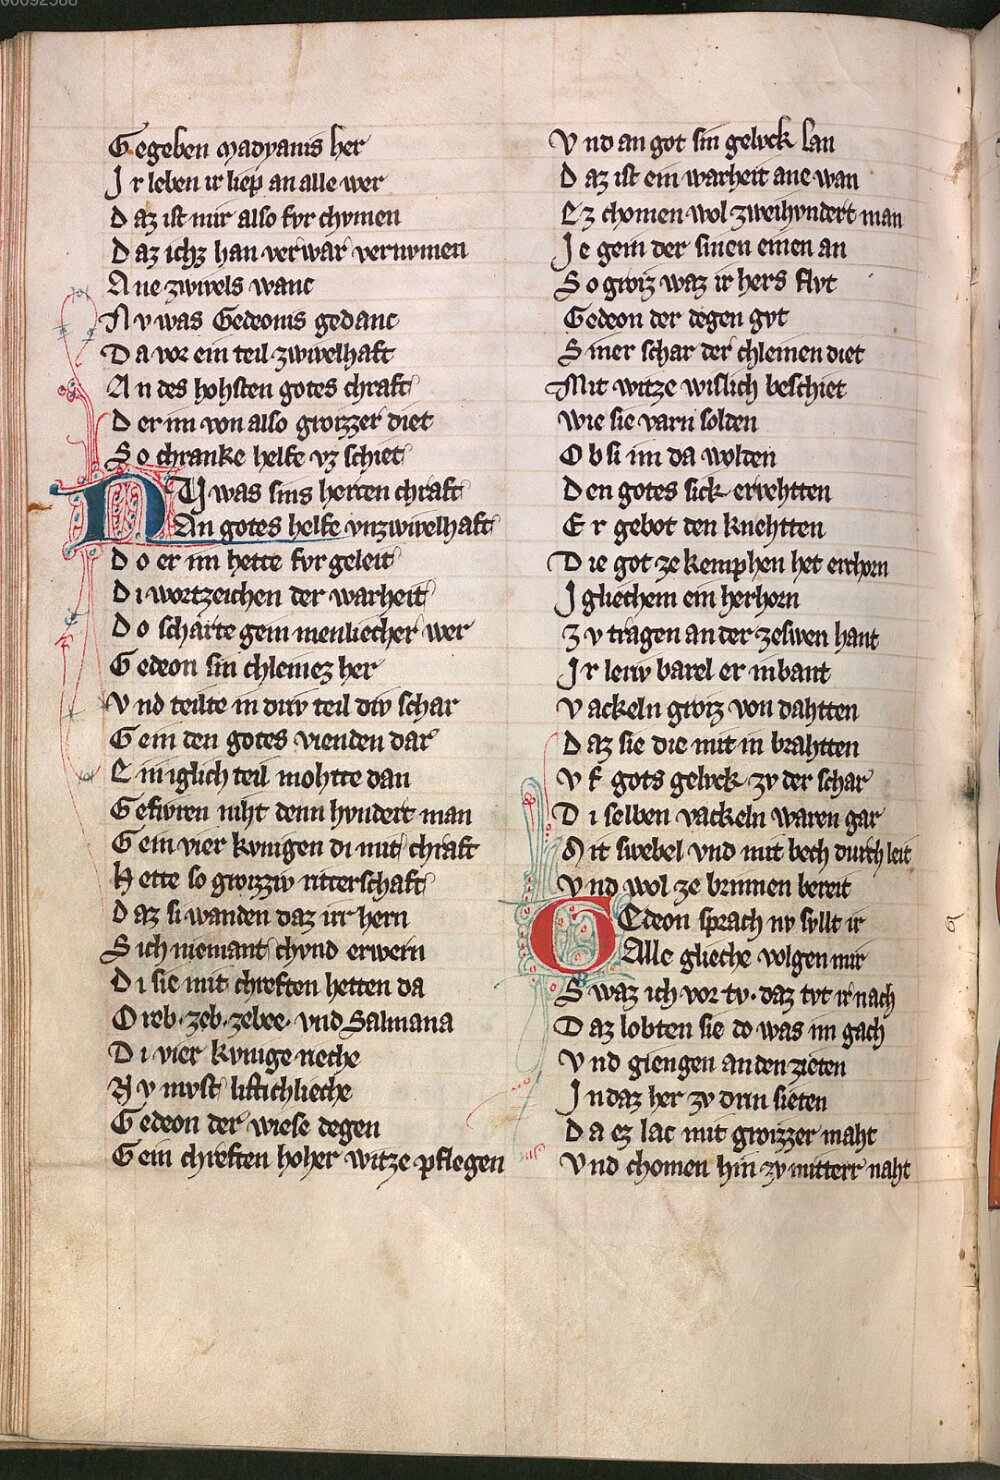 00092588
Gegeben madyanis her
Ir leben ir liep an alle wer
Daz ist mir also fvr chvmen
Daz ichz han verwar vernvmen
Ane zwivels wanc
Nv was Gedeonis gedanc
Da vor ein teil zwivelhaft
An des hohsten gotes chraft
Der im von also groizzer diet
So chranke helfe vz schiet
NV was sins hertzen chraft
An gotes helfe vnzwivelhaft
Do er im hette fvr geleit
Di wortzeichen der warheit
Do scharte gein menliecher wer
Gedeon sin chleinez her
Vnd teilte in driv teil div schar
Gein den gotes vienden dar
Einiglich teil mohtte dan
Gefvren niht denn hvndert man
Gein vier kvnigen di mit chraft
Hette so groizziv ritterschaft
Daz si wanden daz irr hern
Sich niemant chvnd erwern
Di sie mit chreften hetten da
Oreb · zeb · zebee · vnd Salmana
Di vier kvnige riche
Nv mvst listichlieche
Gedeon der wiese degen
Gein chreften hoher witze pflegen
Vnd an got sin gelvck lan
Daz ist ein warheit ane wan
Ez chomen wol zweihvndert man
Ie gein der sinen einen an
So groiz waz ir hers flvt
Gedeon der degen gvt
Siner schar der chleinen diet
Mit witze wislich beschiet
Wie sie varn solden
Ob si im da wolden
Den gotes sick ervehtten
Er gebot den knehtten
Die got ze kemphen het erchorn
Igliechem ein herhorn
Zv tragen an der zeswen hant
Ir lenv barel er in bant
Vackeln groiz von dahtten
Daz sie die mit in brahtten
Vf gots gelvck zv der schar
Di selben vackeln waren gar
Mit swebel vnd mit bech durch leit
Vnd wol ze brinnen bereit
GEdeon sprach nv svllt ir
Alle glieche volgen mir
Swaz ich vor tv · daz tvt ir nach
Daz lobten sie do was im gach
Vnd giengen an den zieten
In daz her zv drin sieten
Da ez lac mit groizzer maht
Vnd chomen hin zv mitterr naht